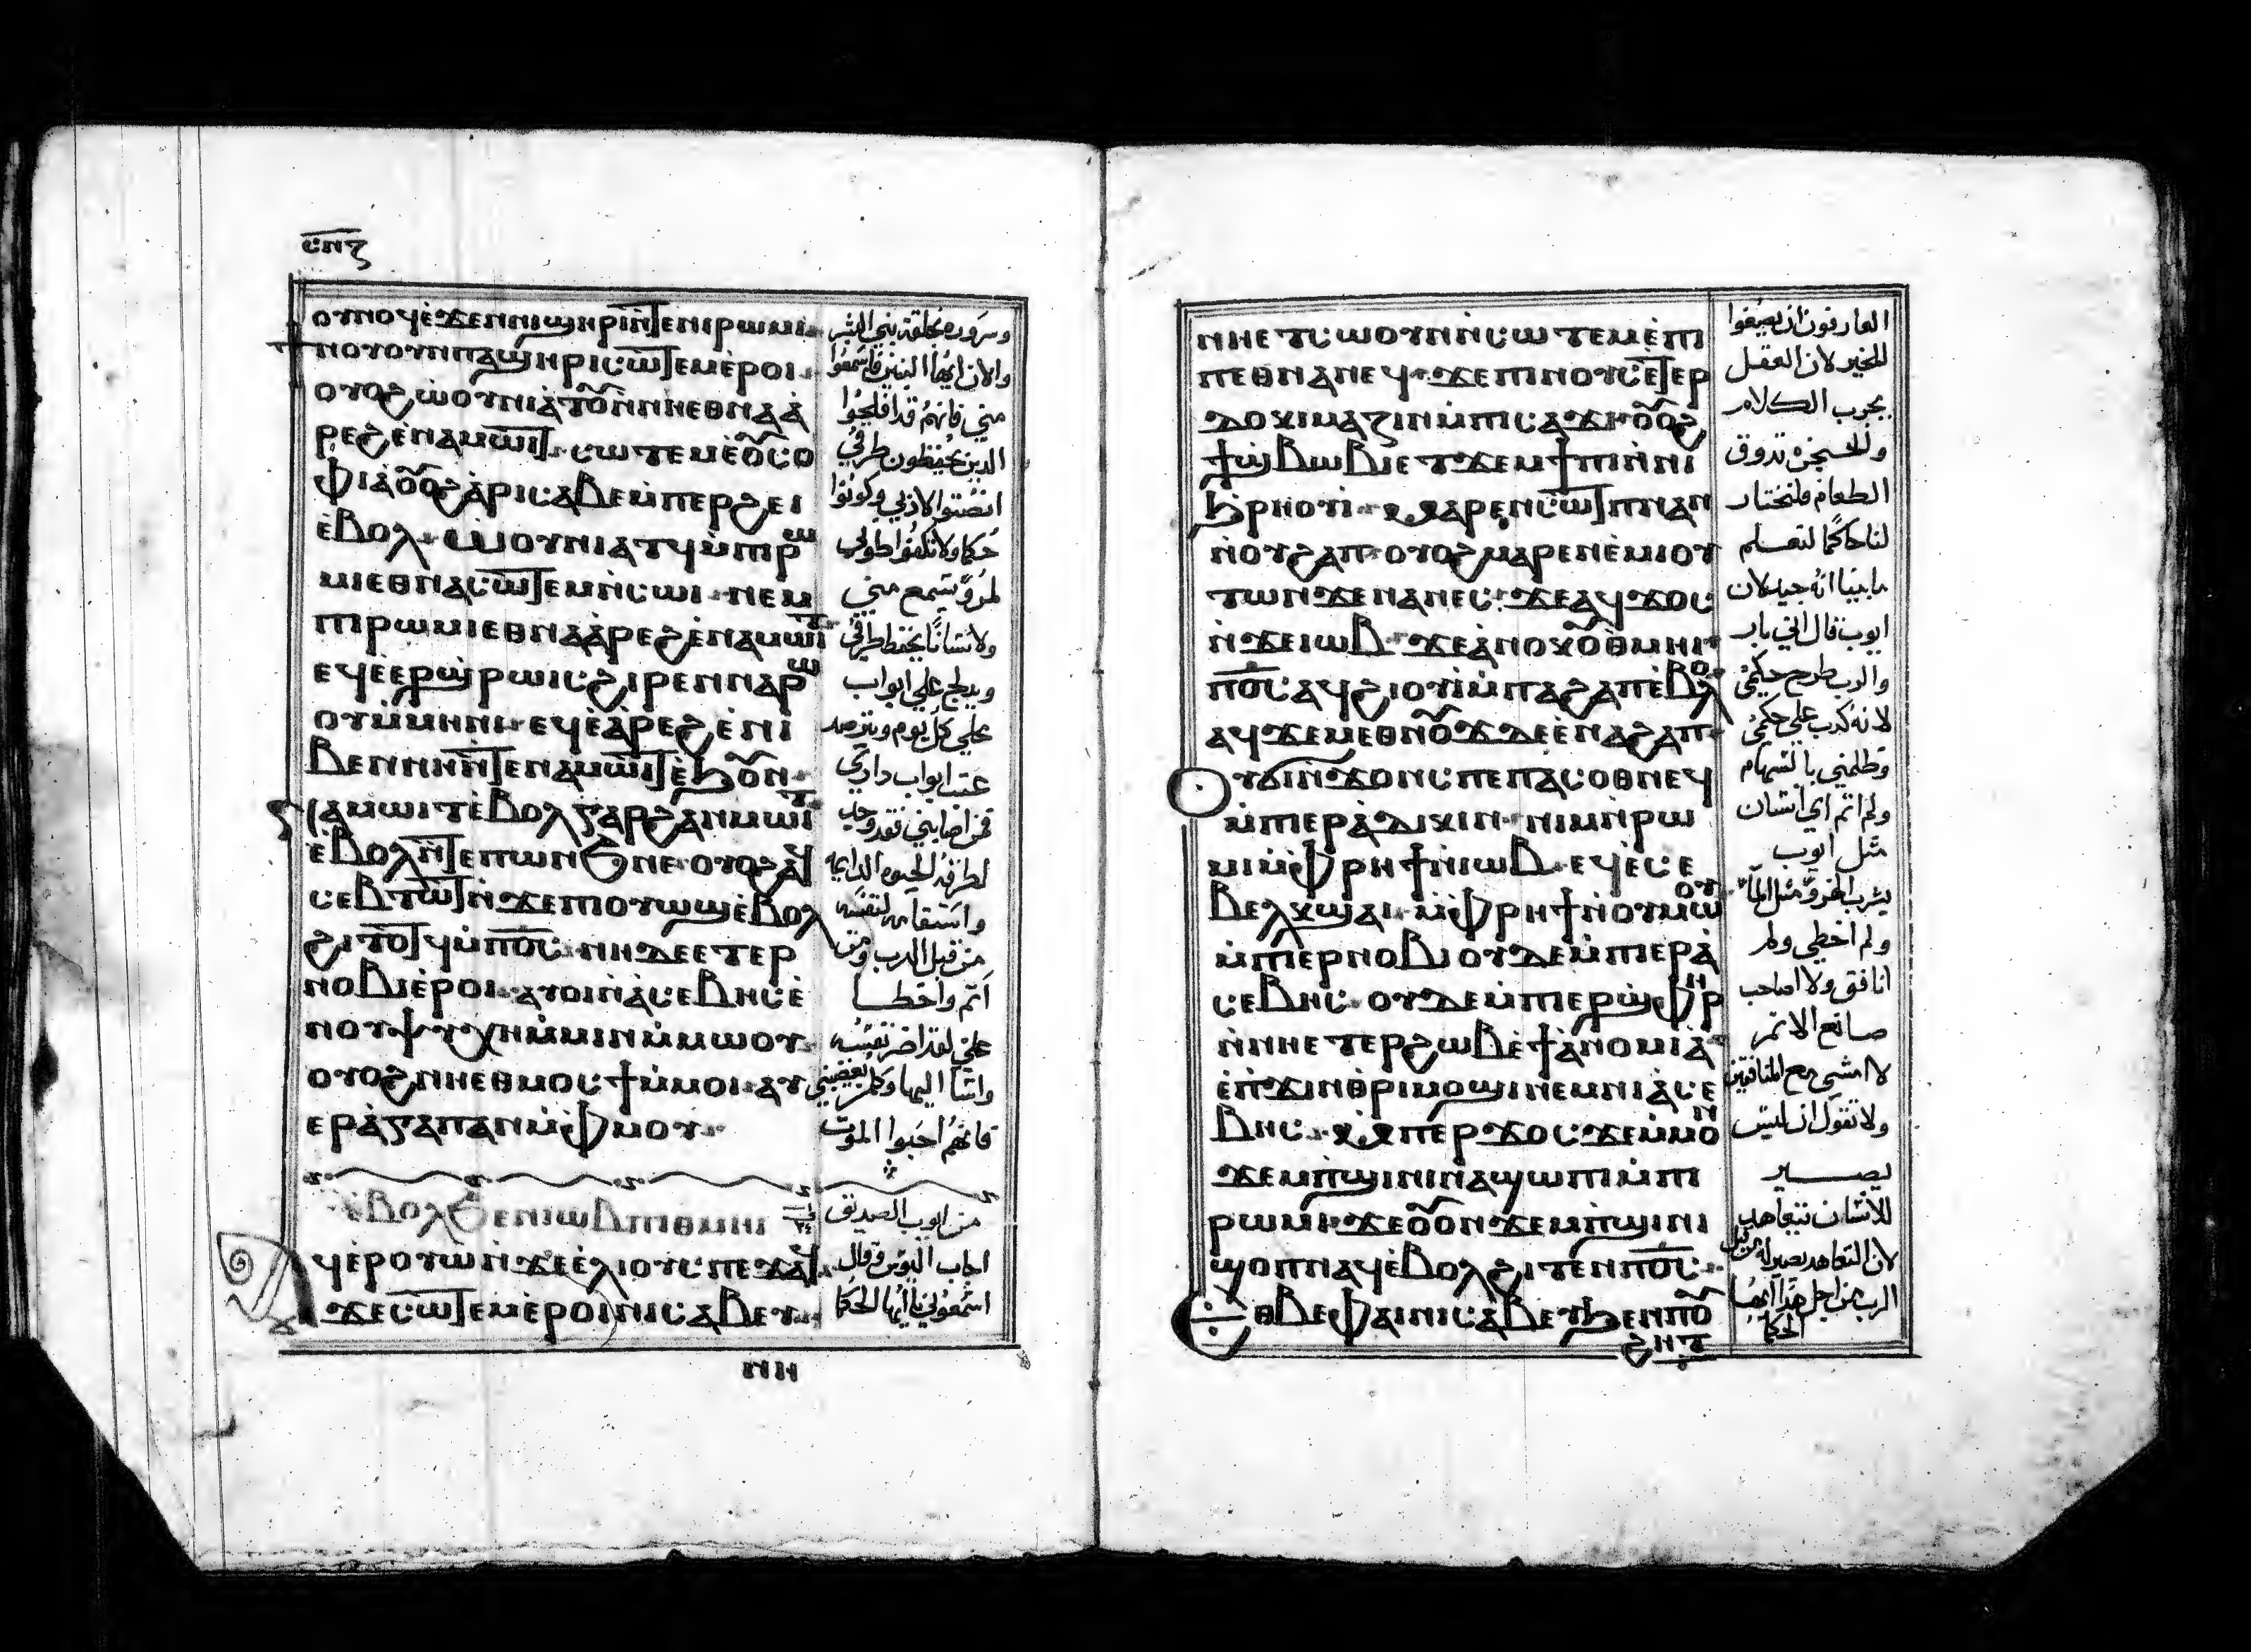 ⲥⲛⲍ
ⲟⲩⲛⲟϥ ⲉ̀ϫⲉⲛ ⲛⲓϣⲏⲣⲓ ⲛ̄ⲧⲉ ⲛⲓⲣⲱⲙⲓ
ϯⲛⲟⲩ ⲟⲩⲛ ⲡⲁϣⲏⲣⲓ ⲥⲱⲧⲉⲙ ⲉ̀ⲣⲟⲓ
ⲟⲩⲟϩ ⲱⲟⲩⲛⲓⲁ̀ⲧⲟⲩ ⲛ̀ⲛⲏ ⲉⲑⲛⲁⲁ̀
ⲣⲉϩ ⲉ̀ⲛⲁⲙⲱⲓⲧ ⲥⲱⲧⲉⲙ ⲉ̀ⲟⲩⲥⲟ
ⲫⲓⲁ̀ ⲟⲩⲟϩ ⲁ̀ⲣⲓⲥⲁⲃⲉ ⲙ̀ⲡⲉⲣϩⲉⲓ
ⲉ̀ⲃⲟⲗ ⲱⲟⲩⲛⲓⲁⲧϥ ⲙ̀ⲡⲓⲣⲱ
ⲙⲓ ⲉⲑⲛⲁⲥⲱⲧⲉⲙ ⲛ̀ⲥⲱⲓ ⲛⲉⲙ
ⲡⲓⲣⲱⲙⲓ ⲉⲑⲛⲁⲁ̀ⲣⲉϩ ⲉ̀ⲛⲁⲙⲱⲓⲧ
ⲉϥⲉ̀ⲉⲣϣ̀ⲣⲱⲓⲥ ϩⲓⲣⲉⲛ ⲛⲁⲣⲱ
ⲟⲩ ⲙ̀ⲙⲏⲛⲓ ⲉϥⲉ̀ⲁ̀ⲣⲉϩ ⲉ̀ⲛⲓ
ⲃⲉⲛⲛⲏ ⲛ̄ⲧⲉ ⲛⲁⲙⲱⲓⲧ ⲉ̀ϧⲟⲩⲛ
ⲛⲁⲙⲱⲓⲧ ⲉ̀ⲃⲟⲗ ⲅⲁⲣ ϩⲁⲛⲙⲱⲓⲧ
ⲉ̀ⲃⲟⲗ ⲛ̄ⲧⲉ ⲡⲱⲛϧ ⲛⲉ ⲟⲩⲟϩ ⲁϥ
ⲥⲉⲃⲧⲱⲧ ⲛ̀ϫⲉ ⲡⲓⲟⲩⲱϣ ⲉ̀ⲃⲟⲗ
ϩⲓⲧⲟⲧϥ ⲙ̀ⲡⲟⲥ ⲛⲏ ⲇⲉ ⲉⲧⲉⲣ
ⲛⲟⲃⲓ ⲉ̀ⲣⲟⲓ ⲁⲩⲟⲓ ⲛ̀ⲁ̀ⲥⲉⲃⲏⲥ ⲉ̀
ⲛⲟⲩⲯⲩⲭⲏ ⲙ̀ⲙⲓⲛ ⲙ̀ⲙⲱⲟⲩ
ⲟⲩⲟϩ ⲛⲏ ⲉⲑⲙⲟⲥϯ ⲙ̀ⲙⲟⲓ ⲁⲩ
ⲉⲣⲁ̀ⲅⲁⲡⲁⲛ ⲙ̀ⲫⲙⲟⲩ
ⲉ̀ⲃⲟⲗϧⲉⲛ ⲓⲱⲃ ⲡⲓⲑⲙⲏⲓ
ⲁϥⲉ̀ⲣⲟⲩⲱ ⲛ̀ϫⲉ ⲉ̀ⲗⲓⲟⲩⲥ ⲡⲉϫⲁϥ
ϫⲉ ⲥⲱⲧⲉⲙ ⲉ̀ⲣⲟⲓ ⲛⲓⲥⲁⲃⲉⲩ
ⲛⲏⲛ
وسروره بخلقة بني البشر
والان ايها البنين فاسمعوا
مني فانهم قد افلحوا
الذين يحفظون طرقي
انصتوا الادبي وكونوا
حكما ولا تكفوا طوبي
لمرؤ يسمع مني
ولانسانا يحفظ طرقي
ويدلج علي ابواب
علي كل يوم ويترصد
عتب ابواب داري
فمن اصابني فقد وجد
لطرقه الحيوه الدايمه
واستقامه لنفسه
من قبل الرب ومن
اثم واخطـا
علي لقد اضر نفسه
واسا اليها وكلمن يبغضني
فانهم احبوا الموت
من ايوب الصديق
اجاب اليوس وقال
اسمعوني يا ايها الحكما
ⲛⲏ ⲉⲧⲥⲱⲟⲩⲛ ⲛ̀ⲥⲱⲧⲉⲙ ⲉ̀ⲡⲓ
ⲡⲉⲑⲛⲁⲛⲉϥ ϫⲉ ⲡⲓⲛⲟⲩⲥ ⲉⲧⲉⲣ
ⲇⲟⲕⲓⲙⲁⲍⲓⲛ ⲙ̀ⲡⲓⲥⲁϫⲓ ⲟⲩⲟϩ
ϯϣ̀ⲃⲱⲃⲓ ⲉⲧϫⲉⲙϯⲡⲓ ⲛ̀ⲛⲓ
ϧ̀ⲣⲏⲟⲩⲓ ⲙⲁⲣⲉⲛⲥⲱⲧⲡ ⲛⲁⲛ
ⲛ̀ⲟⲩϩⲁⲡ ⲟⲩⲟϩ ⲙⲁⲣⲉⲛⲉ̀ⲙⲓ ⲟⲩ
ⲧⲱⲛ ϫⲉ ⲛⲁⲛⲉⲥ ϫⲉ ⲁϥϫⲟⲥ
ⲛ̀ϫⲉ ⲓⲱⲃ ϫⲉ ⲁ̀ⲛⲟⲕ ⲟⲩⲑⲙⲏⲓ
ⲡⲟⲥ ⲁϥϩⲓⲟⲩⲓ ⲙ̀ⲡⲁϩⲁⲡ ⲉ̀ⲃⲟⲗ
ⲁϥϫⲉⲙⲉⲑⲛⲟⲩϫ ⲇⲉ ⲉ̀ⲛⲁϩⲁⲡ
ⲟⲩϭⲓⲛ̀ϫⲟⲛⲥ ⲡⲉ ⲡⲁⲥⲟⲑⲛⲉϥ
ⲙ̀ⲡⲉⲣⲁ̀ⲇⲓⲕⲓⲛ ⲛⲓⲙ ⲛ̀ⲣⲱ
ⲙⲓ ⲙ̀ⲫⲣⲏϯ ⲛ̀ⲓⲱⲃ ⲉϥⲉⲥⲉ
ⲃⲉⲗⲕϣⲁⲓ ⲙ̀ⲫⲣⲏϯ ⲛ̀ⲟⲩⲙⲱⲟⲩ
ⲙ̀ⲡⲓⲉⲣⲛⲟⲃⲓ ⲟⲩⲇⲉ ⲙ̀ⲡⲓⲉⲣⲁ̀
ⲥⲉⲃⲏⲥ ⲟⲩⲇⲉ ⲙ̀ⲡⲓⲉⲣϣ̀ⲫⲏⲣ
ⲛ̀ⲛⲏ ⲉⲧⲉⲣϩⲱⲃ ⲉ̀ϯⲁ̀ⲛⲟⲙⲓⲁ̀
ⲉ̀ⲡ̀ϫⲓⲛⲑⲣⲓⲙⲟϣⲓ ⲛⲉⲙ ⲛⲓⲁ̀ⲥⲉ
ⲃⲏⲥ ⲙ̀ⲡⲉⲣϫⲟⲥ ϫⲉ ⲙ̀ⲙⲟⲛ
ϫⲉⲙⲡ̀ϣⲓⲛⲓ ⲛⲁϣⲱⲡⲓ ⲙ̀ⲡⲓ
ⲣⲱⲙⲓ ϫⲉ ⲟⲩⲟⲛ ϫⲉⲙⲡ̀ϣⲓⲛⲓ
ϣⲟⲡ ⲛⲁϥ ⲉ̀ⲃⲟⲗ ϩⲓⲧⲉⲛ ⲡⲟⲥ
ⲉⲑⲃⲉ ⲫⲁⲓ ⲛⲓⲥⲁⲃⲉⲩ ϧⲉⲛ ⲡⲟⲩ
ϩⲏⲧ
العارفون ان يصيغوا
للخير لان العقـل
يجرب الكلام
والحنجره تدوق
الطعام فلنختار
لنا حاكما لنعـلم
ما بيننا انه جيد لان
ايوب قال اني بار
والرب طرح حكمي
لانه كدب علي حكمي
وظلمني بالسهام
ولم اثم اي انسان
مثل ايوب
يشرب الهزؤ مثل الما
ولم اخطي ولم
انافق ولا اصاحب
صانع الاثم
لا امشي مع المنافقين
ولا تقول ان ليس
يصـــير
للانسان تتعاهد
لان التعاهد يصير له من قبل
الرب من اجل هذا ايها
الحكما